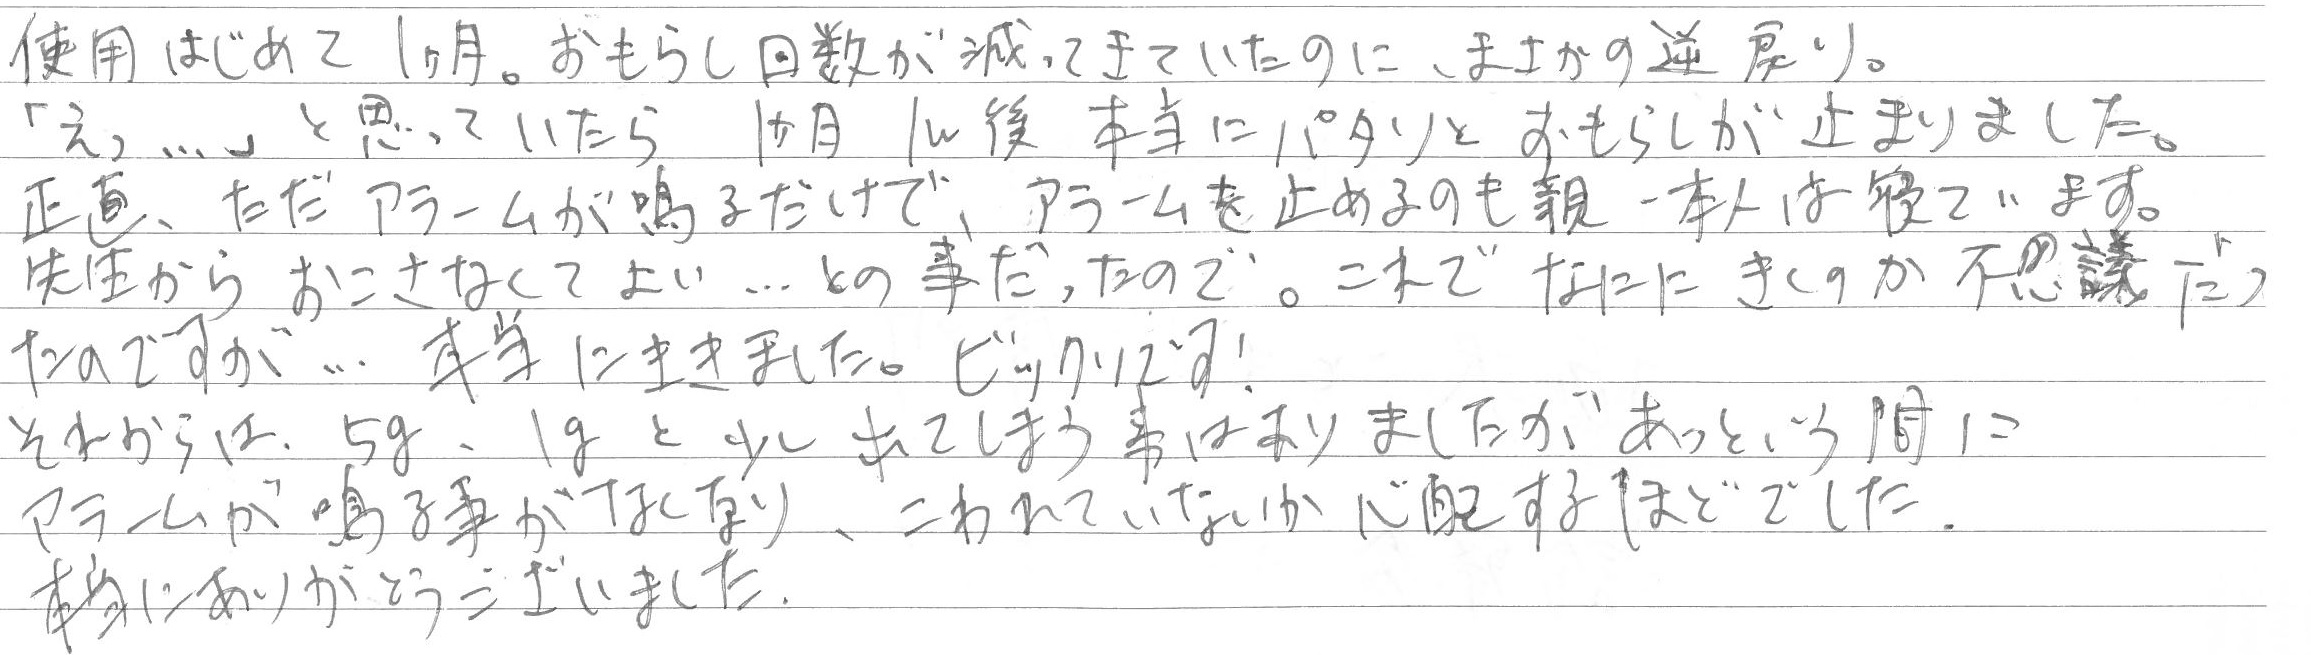 使用はじめて1ヶ月。おもらし回数が減ってきていたのに、まさかの逆戻り。
「えっ…」と思っていたら 1ヶ月 1w後 本当にパタリと おもらしが止まりました。
正直、ただアラームが鳴るだけで、アラームを止めるのも親-本人は寝ています。
先生から おこさなくてよい…との事だったので。これで なにに きくのか 不思議だっ
たのですが… 本当にききました。ビックリです!
それからは、5g、1gと少し出てしまう事はありましたが あっという間に
アラームが鳴る事がなくなり、こわれていないか心配するほどでした.
本当にありがとうございました.